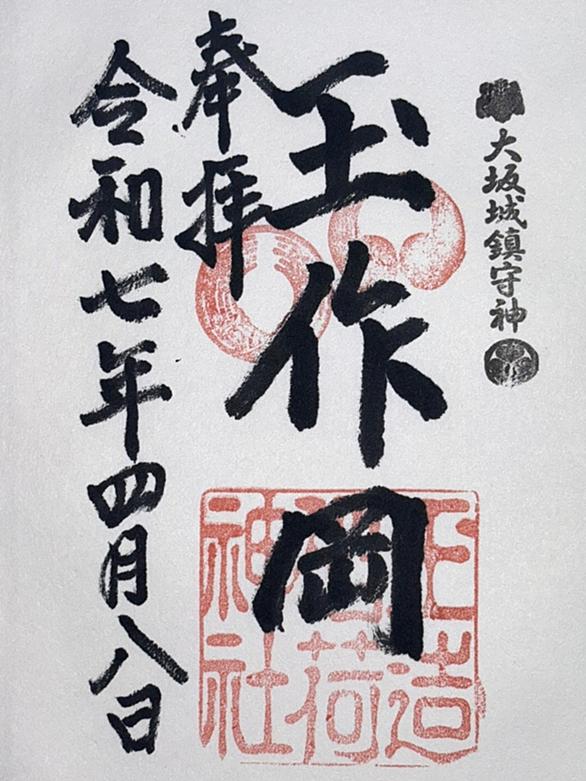 大坂城鎮守神
玉作岡
奉拝
令和七年四月八日
玉造
稲荷
神社